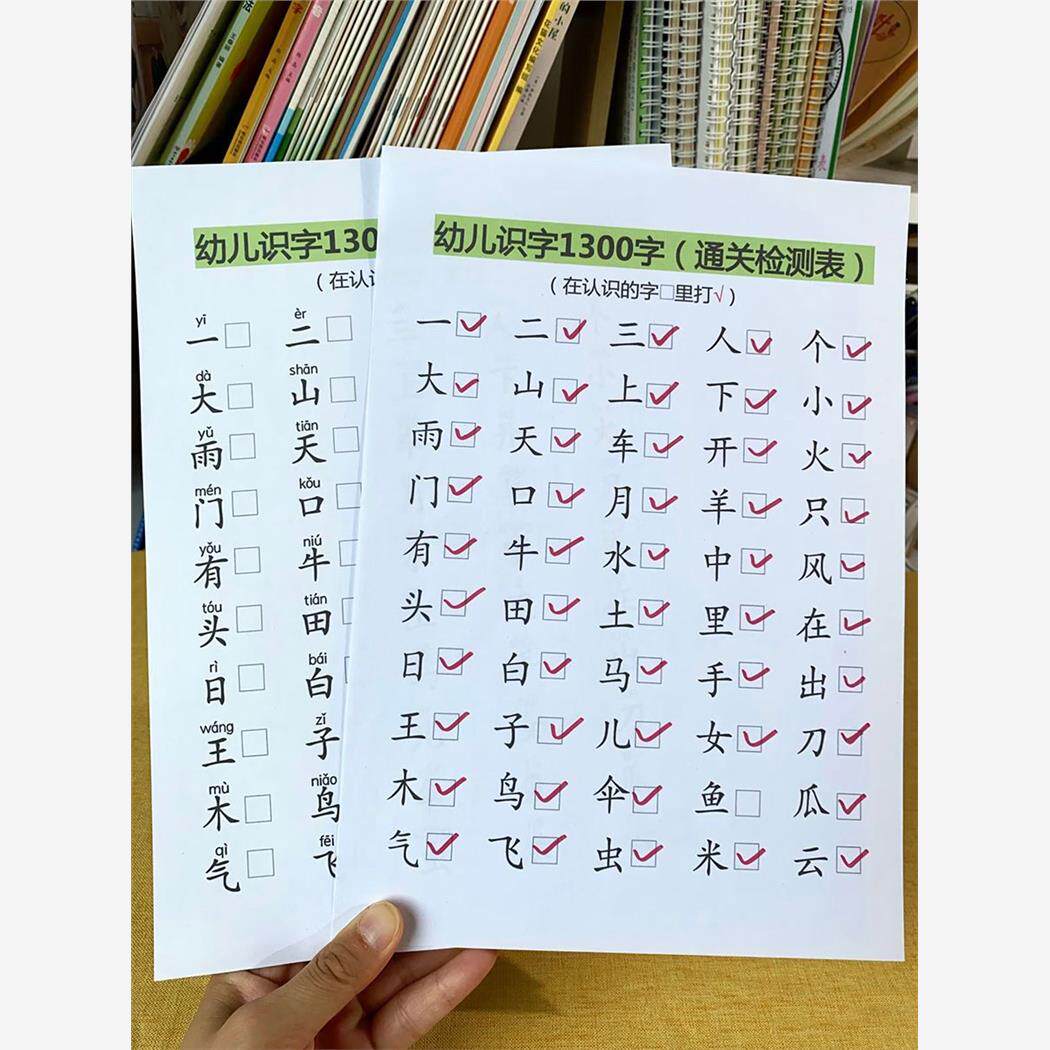 幼儿识字130
（在认识
yī èr
一□ 二□
dà shān
大□ 山□
yǔ tiān
雨□ 天□
mén kǒu
门□ 口□
yǒu niú
有□ 牛□
tóu tián
头□ 田□
rì bái
日□ 白
wáng zǐ
王□ 子
mù niǎo
木□ 鸟
qì fēi
气□ 飞
幼儿识字1300字（通关检测表）
（在认识的字□里打√）
一☑ 二☑ 三☑ 人☑ 个☑
大☑ 山☑ 上☑ 下☑ 小☑
雨☑ 天☑ 车☑ 开☑ 火☑
门☑ 口☑ 月☑ 羊☑ 只☑
有☑ 牛☑ 水☑ 中☑ 风☑
头☑ 田☑ 土☑ 里☑ 在☑
日☑ 白☑ 马☑ 手☑ 出☑
王☑ 子☑ 儿☑ 女☑ 刀☑
木☑ 鸟☑ 伞☑ 鱼□ 瓜☑
气☑ 飞☑ 虫☑ 米☑ 云☑